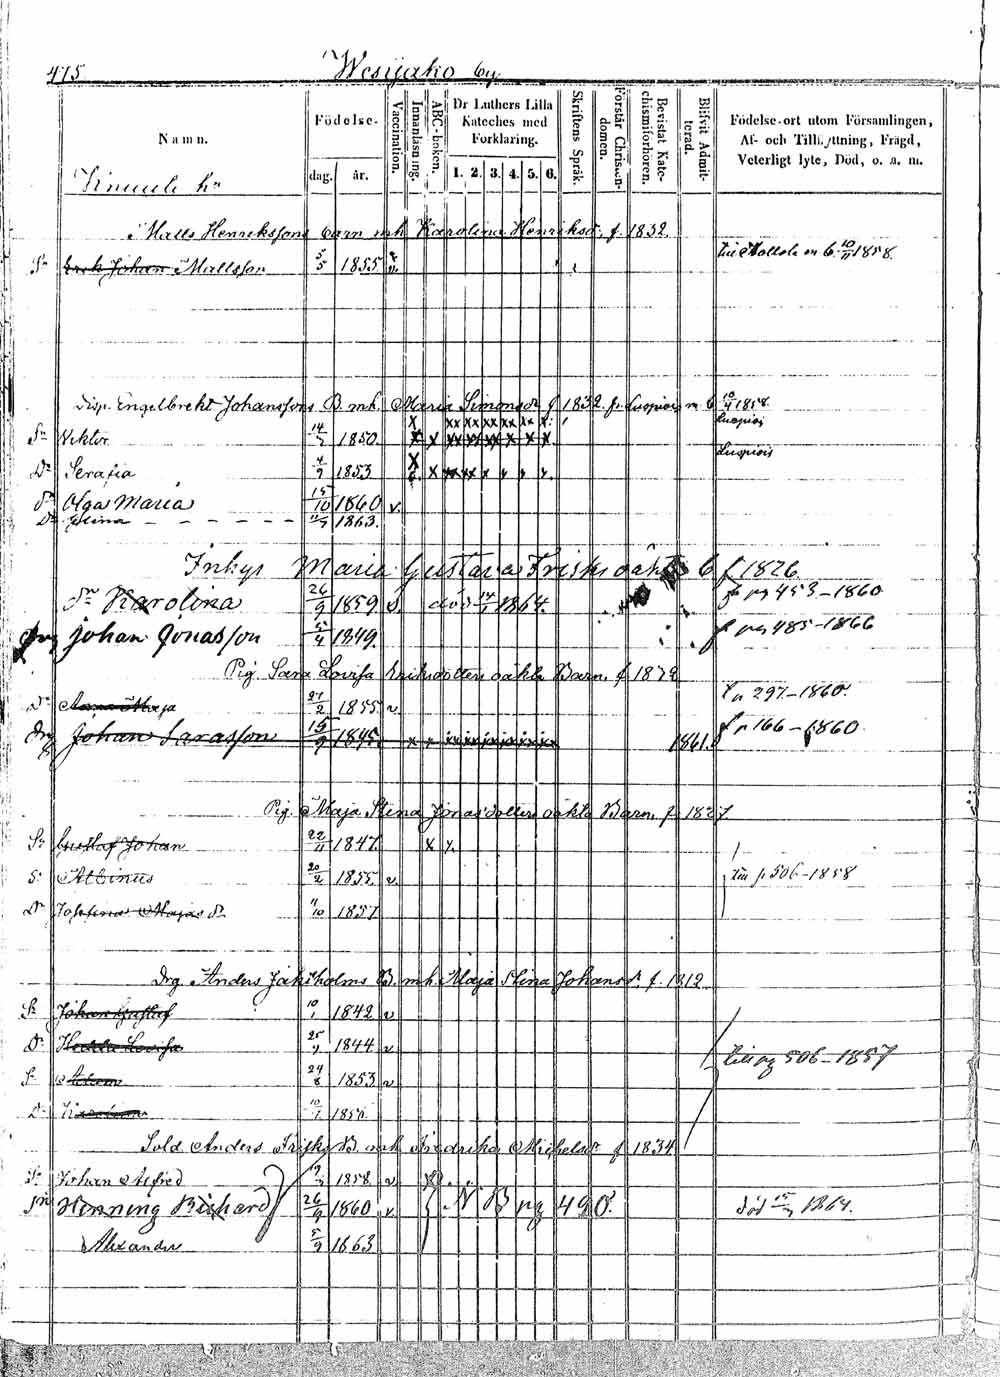 475. Wesijako by
Namn.
Födelse-
dag. år.
Vaccination.
Innanläsning.
ABC-boken.
Dr Luthers Lilla Kateches med Förklaring.
1. 2. 3. 4. 5. 6.
Skriftens Språk.
Förstår Christendomen.
Bevistat Katechismiförhören.
Blifvit Admitterad.
Födelse-ort utom Församlingen,
Af- och Tillflyttning, Frägd,
Veterligt lyte, Död, o. a. m.
Matts Henrikssons barn mh Karolina Henriksdr f. 1832
Sn Erik Johan Mattsson 5/5 1855 v. 10/11 1858.
Disp. Engelbrekt Johanssons B. mh. Maria Simonsdr f 1832. fr. Luopiois m b 10/4 1858.
Sn Viktor 14/7 1850. x x xx xx xx x x x Luopiois
Dr Serafia 4/9 1853 x x xx xx x x x x Luopiois
Dr Olga Maria 15/10 1860 v.
Dr Stina 1863.
Inhys Maria Gustava Frisks oäkta b f 1826.
Dr Karolina 26/9 1859 v död 14/1 1864. fr pg 453-1860
Drg Johan Jonasson 5/4 1849. f pag 485-1866
Pig. Sara Lovisa Eriksdotters oäkta Barn. f 1822
Dr Anna Maja 27/2 1855 v t p 297-1860.
Drg Johan Sarasson 15/9 1845. x x xx xx xx xx xx xx 1861. f p 166-1860
Pig. Maja Stina Jonasdotters oäkta Barn. f 1827.
Sn Gustaf Johan 22/11 1847 x x
S. Albinus 20/2 1855. v. till p 506-1858
Dr Josefina Majas dr 11/10 1857
Drg. Anders Jakobsholms B. mh. Maja Stina Johansdr f. 1812
Sn Johan Gustaf 10/1 1842 v
Dr Hedda Lovisa 25/9 1844 v till pg 506-1857
Sn Adam 24/8 1853 v
Dr Karolina 10/1
Sold. Anders Frisks B. mh Fredrika Michelsdr f 1834
Sn Johan Alfred 1858 v
Sn Henning Richard 26/9 1860 v. NB pg 490. död 1864.
Alexander 5/9 1863